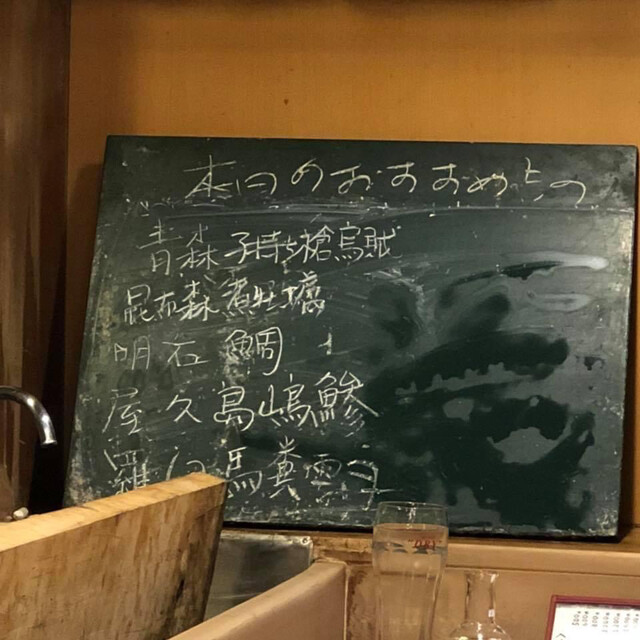 本日のおすすめもの
青森 子持ち槍烏賊
昆布森 煮牡蠣
明石 鯛
屋久島嶋鯵
羅臼馬糞雲丹